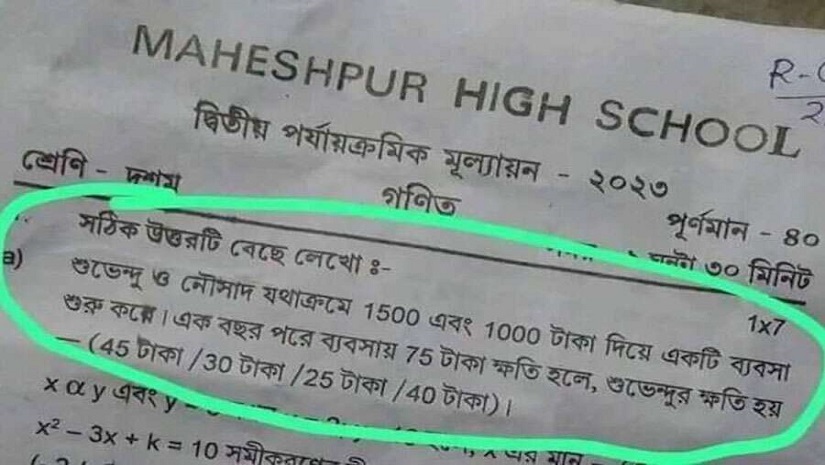 MAHESHPUR HIGH SCHOOL
R-
2
দ্বিতীয় পর্যায়ক্রমিক মূল্যায়ন - ২০২৩
শ্রেণি - দশম
গণিত
পূর্ণমান - 80
৩০ মিনিট
সঠিক উত্তরটি বেছে লেখো ঃ-
1x7
a) শুভেন্দু ও নৌসাদ যথাক্রমে 1500 এবং 1000 টাকা দিয়ে একটি ব্যবসা
শুরু করে। এক বছর পরে ব্যবসায় 75 টাকা ক্ষতি হলে, শুভেন্দুর ক্ষতি হয়
– (45 টাকা /30 টাকা /25 টাকা /40 টাকা)।
x α y এবং y
x² – 3x + k = 10